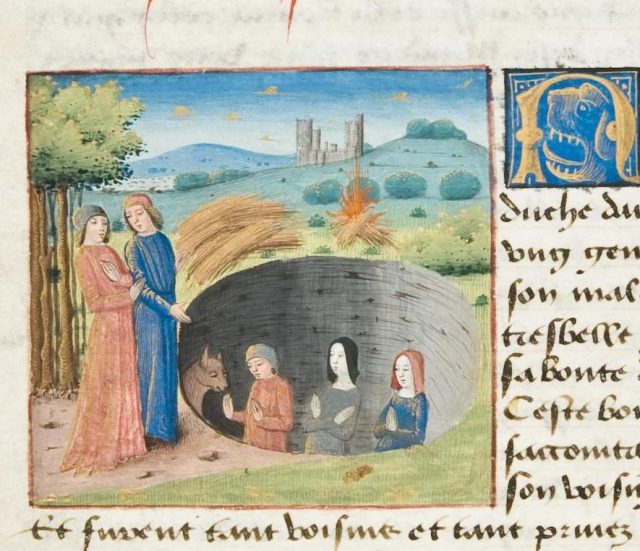 N
duche dau
ung gen
son mal
tresbelle
sa bonte
Ceste bon
saccointa
son voisin
Et furent tant voisins et tant privez